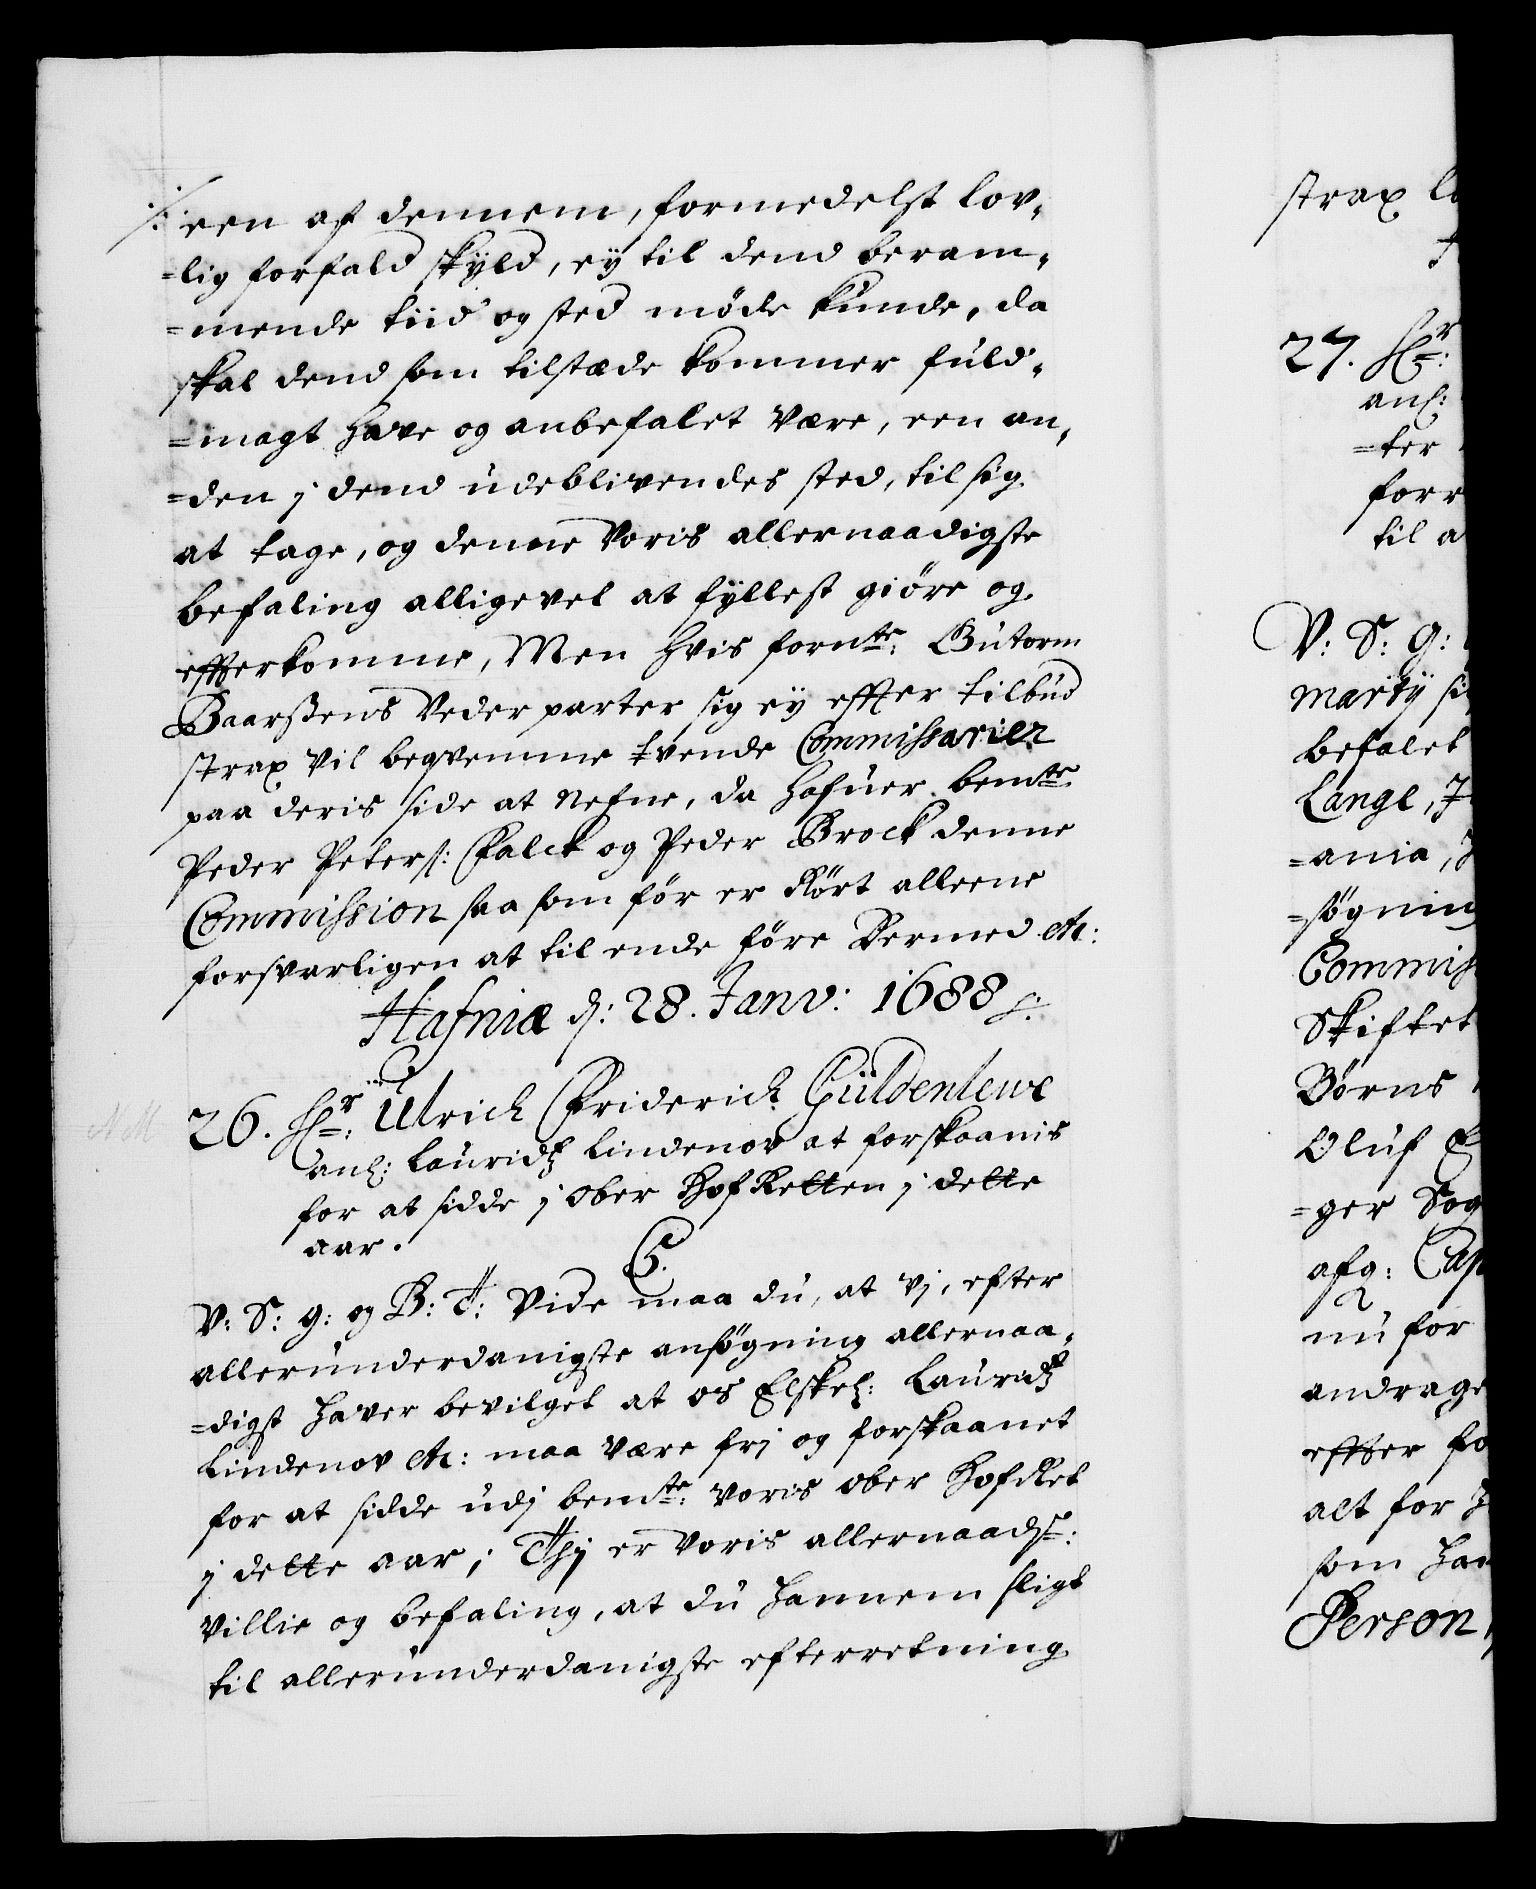 ·/: een af dennem, formedelst lov,
=lig forfald skyld, ey til dend beram,
=mende tiid og sted møde kunde, da
skal dend som tilstæde kommer fuld,
=magt have og anbefalet være, een an,
=den j dend udeblivendes sted, til sig
at tage, og denne voris allernaadigste
befaling alligevel at fyllest giøre og
effterkomme, Men hvis fornte: Gutorm
Baarssens Veder parter sig ey effter tilbud
strax vil beqvemme tvende Commissarier
paa deris side at nefne, da hafuer bemte
Peder Peters: Falck og Peder Brock denne
Commission saa som før er rørt alleene
forsvarligen at til ende føre Dermed etc:
Hafniæ d: 28. Janv: 1688
26. Hr: Ulrich Friderich Güldenlewe
anl: Lauridtz Lindenov at forskaanis
for at sidde j Ober Hof Retten j dette
aar.
C5.
V: S: G: og B: T: Vide maa du, at vj, efter
allerunderdanigste ansøgning allernaa,
=digst haver bevilget at os Elskel: Lauridtz
Lindenov etc: maa være frj og forskaanet
for at sidde udj bemte: voris Ober Hof Ret
j dette aar; Thj er voris allernaadste:
villie og befaling, at du hannem sligt
til allerunderdanigste efterretning
strax
27. Hr:
anl:
=ter
forr
til a
V: S: G:
Martij
befalet
Lange,
=ania,
=søgning
Commis
Skiftet
Børns
Oluf
=ger Sog
afg: Cap
nu for
andrage
effter fo
alt for
som han
Person,